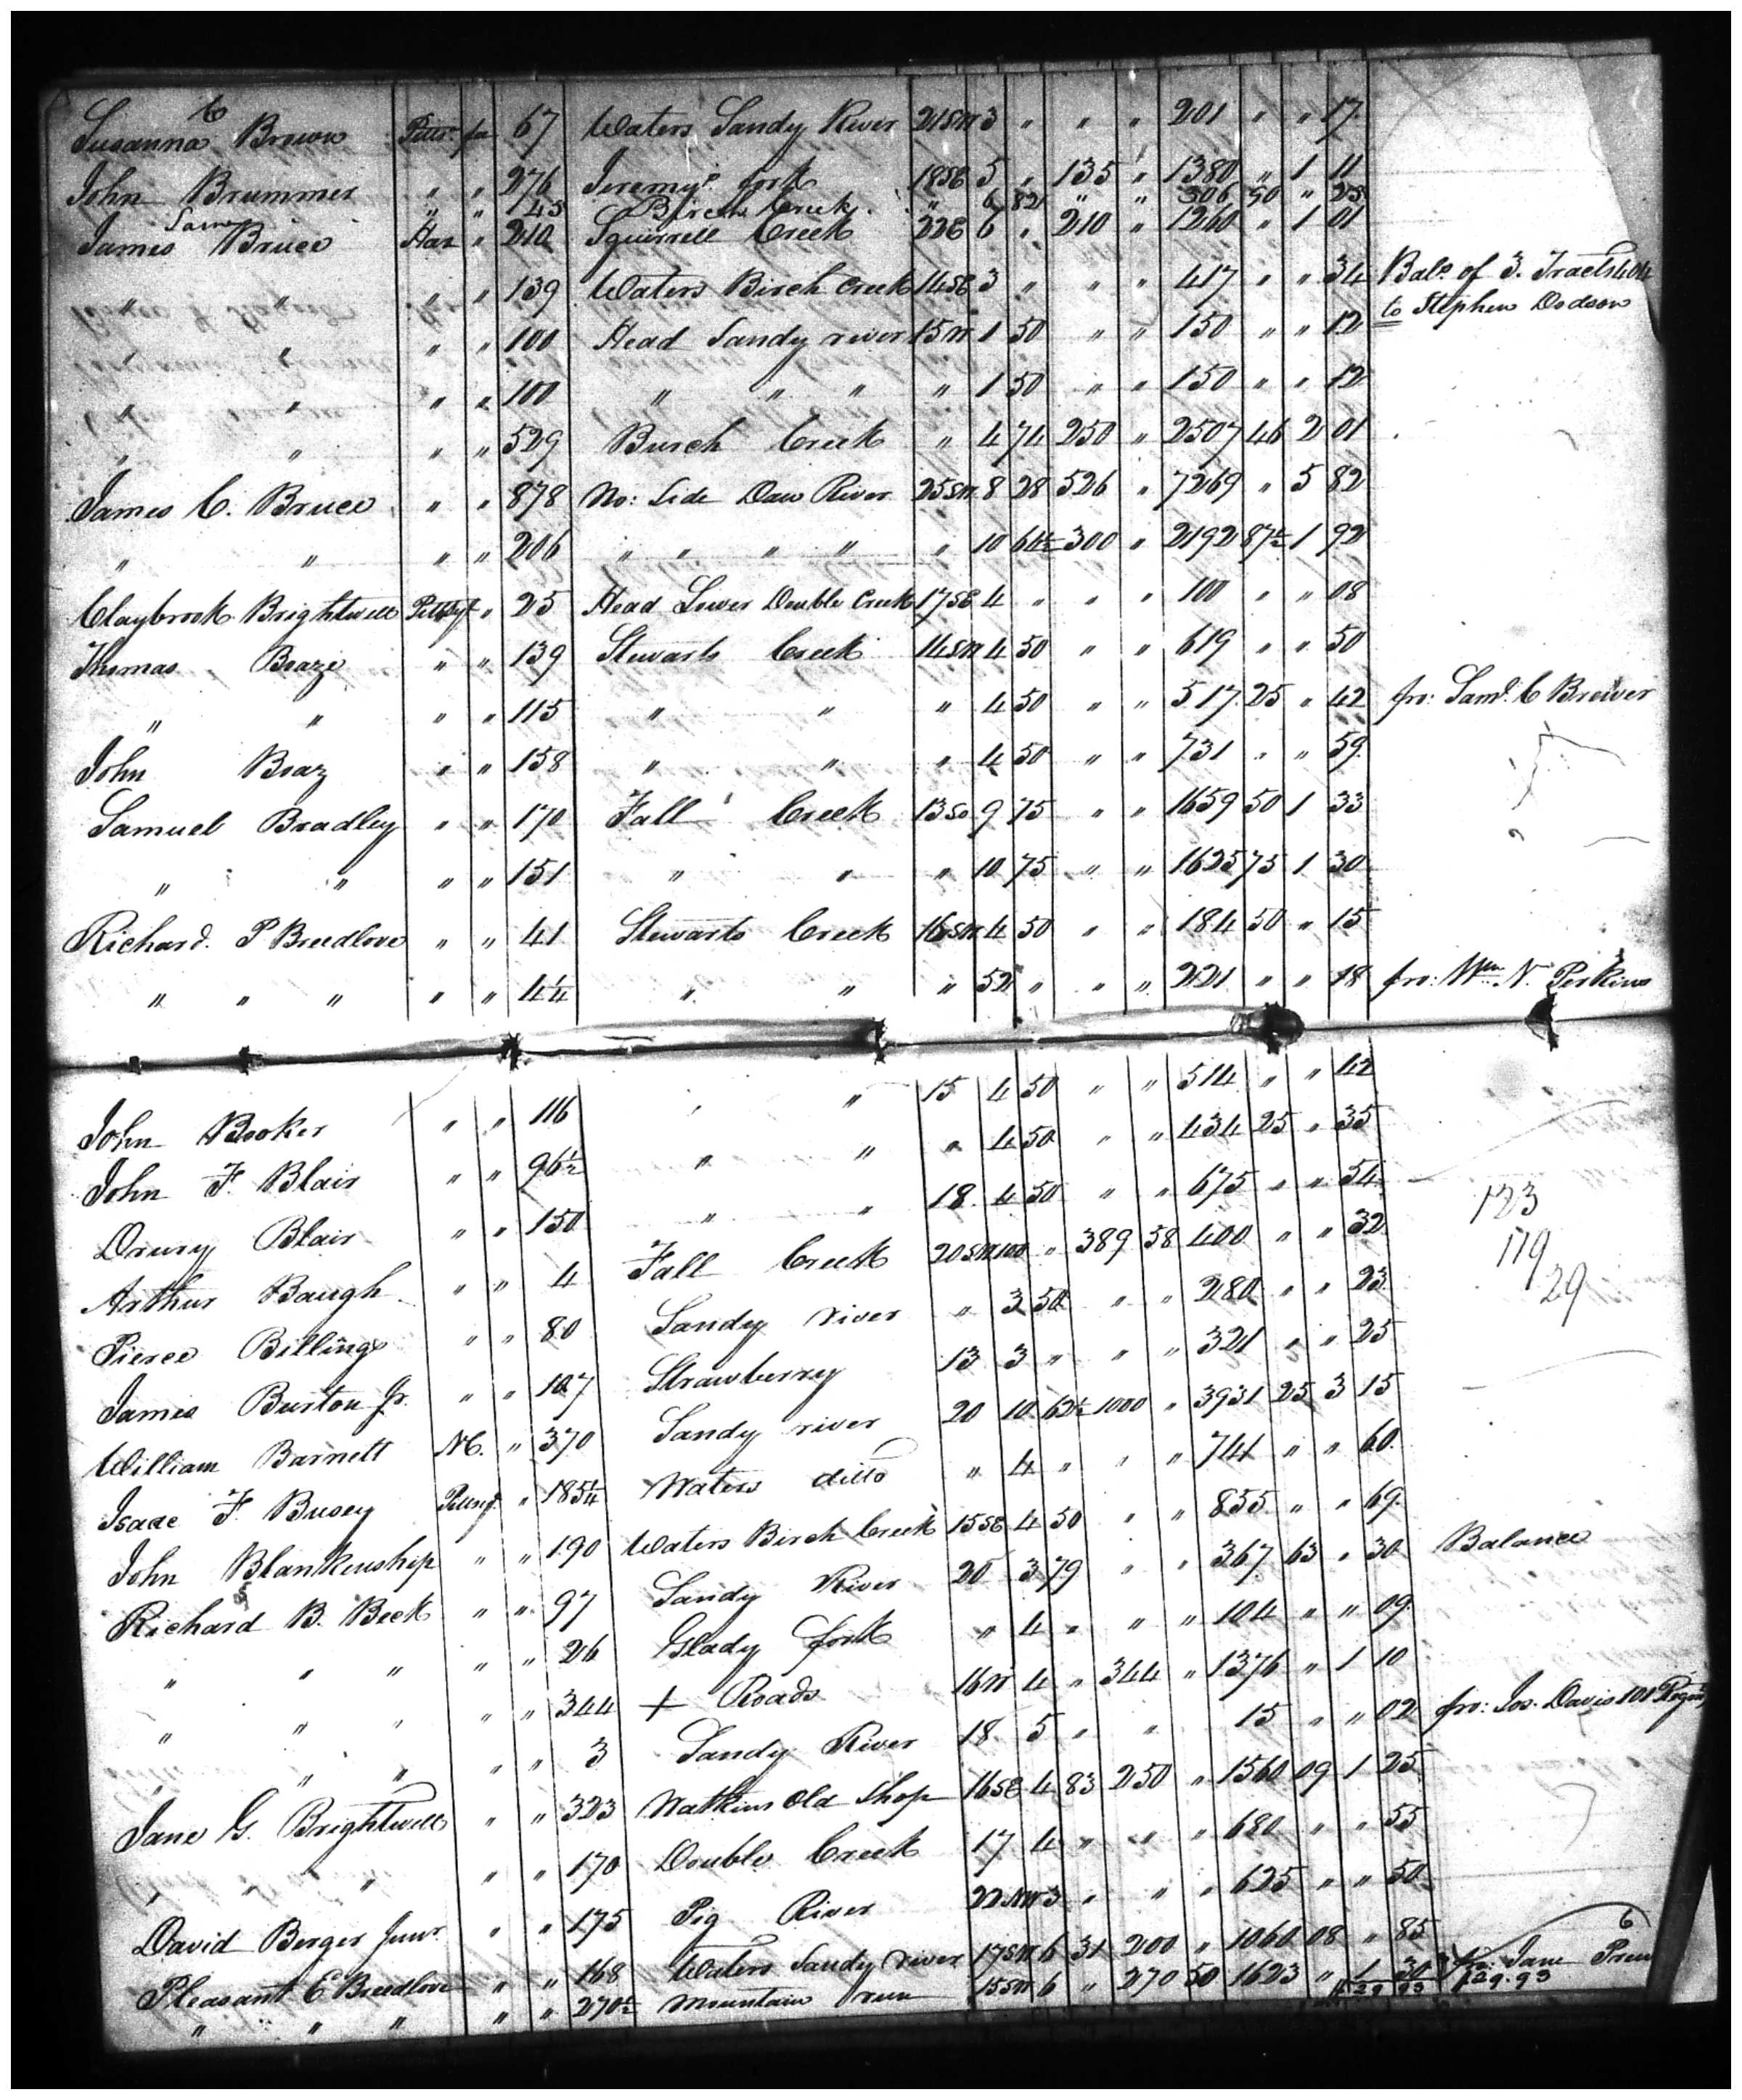 Susanna C Brown Pitts. fee 67 Waters Sandy River 21 SW 3 " " " 201 " " 17
John Brummer " " 276 Jeremys fork 18 SE 5 " 135 " 1380 " 1 11
Same " " 45 Birch Creek " 6 82 " " 306 90 " 25
James Bruce Hax " 210 Squirrell Creek 22 E 6 " 210 " 1260 " 1 01
" " " " 139 Waters Birch Creek 14 SE 3 " " " 417 " " 34 Balc. of 3. Tracts 404
to Stephen Dodson
" " " " 100 Head Sandy river 15 W 1 50 " " 150 " " 12
" " " " 100 " " " " 1 50 " " 150 " " 12
" " " " 529 Burch Creek " 4 74 250 " 2507 46 2 01
James C. Bruce " " 878 No: Side Dan River 25 SW 8 28 526 " 7269 " 5 82
" " " " 206 " " " " " 10 64½ 300 " 2192 87½ 1 92
Claybrook Brightwell Pittsy " 25 Head Lower Double Creek 17 SE 4 " " " 100 " " 08
Thomas Boaze " " 139 Stewarts Creek 14 SW 4 50 " " 619 " " 50
" " " " 115 " " " 4 50 " " 517 25 " 42 fro: Saml. C Brewer
John Boaz " " 158 " " " 4 50 " " 731 " " 59
Samuel Bradley " " 170 Fall Creek 13 SO 9 75 " " 1659 50 1 33
" " " " 151 " " " 10 75 " " 1625 75 1 30
Richard. P Breedlove " " 41 Stewarts Creek 16 SW 4 50 " " 184 50 " 15
" " " " " 4¼ " " " 52 " " " 221 " " 18 fro: Wm N. Perkins
John Booker " " 116 " " 15 4 50 " " 514 " " 42
John F. Blair " " 96½ " " " 4 50 " " 434 25 " 35
Drury Blair " " 150 " " 18 4 50 " " 675 " " 54
123
Arthur Baugh " " 4 Fall Creek 20 SW 100 " 389 58 400 " " 32
119
Pierce Billings " " 80 Sandy river " 3 50 " " 280 " " 23
29
James Burton Jr. " " 107 Strawberry 13 3 " " " 321 " " 25
William Barnett NC. " 370 Sandy river 20 10 62½ 1000 " 3931 25 3 15
Isaac F. Busey Pittsy. " 185¼ Waters ditto " 4 " " " 741 " " 60
John Blankenship " " 190 Waters Birch Creek 15 SE 4 50 " " 855 " " 69
Richard B. Beck " " 97 Sandy River 20 3 79 " " 367 63 " 30 Balance
" " " " " 26 Glady fork " 4 " " " 104 " " 09
" " " " " 344 + Roads 16 W 4 " 344 " 1376 " 1 10
" " " " " 3 Sandy River 18 5 " " 15 " " 02 fro: Jos. Davis 101
Jane G. Brightwell " " 323 Watkins Old Shop 16 SE 4 83 250 " 1560 09 1 25
" " " " " 170 Double Creek 17 4 " " " 680 " " 55
David Berger Junr. " " 175 Pig River 22 NW 3 " " " 625 " " 50
Pleasant E Breedlove " " 168 Waters Sandy river 17 SW 6 31 200 " 1060 08 " 85
" " " " " 270½ Mountain run 15 SW 6 " 270 50 1623 " 1 30 fro: Jane
29 93 $29.93
6